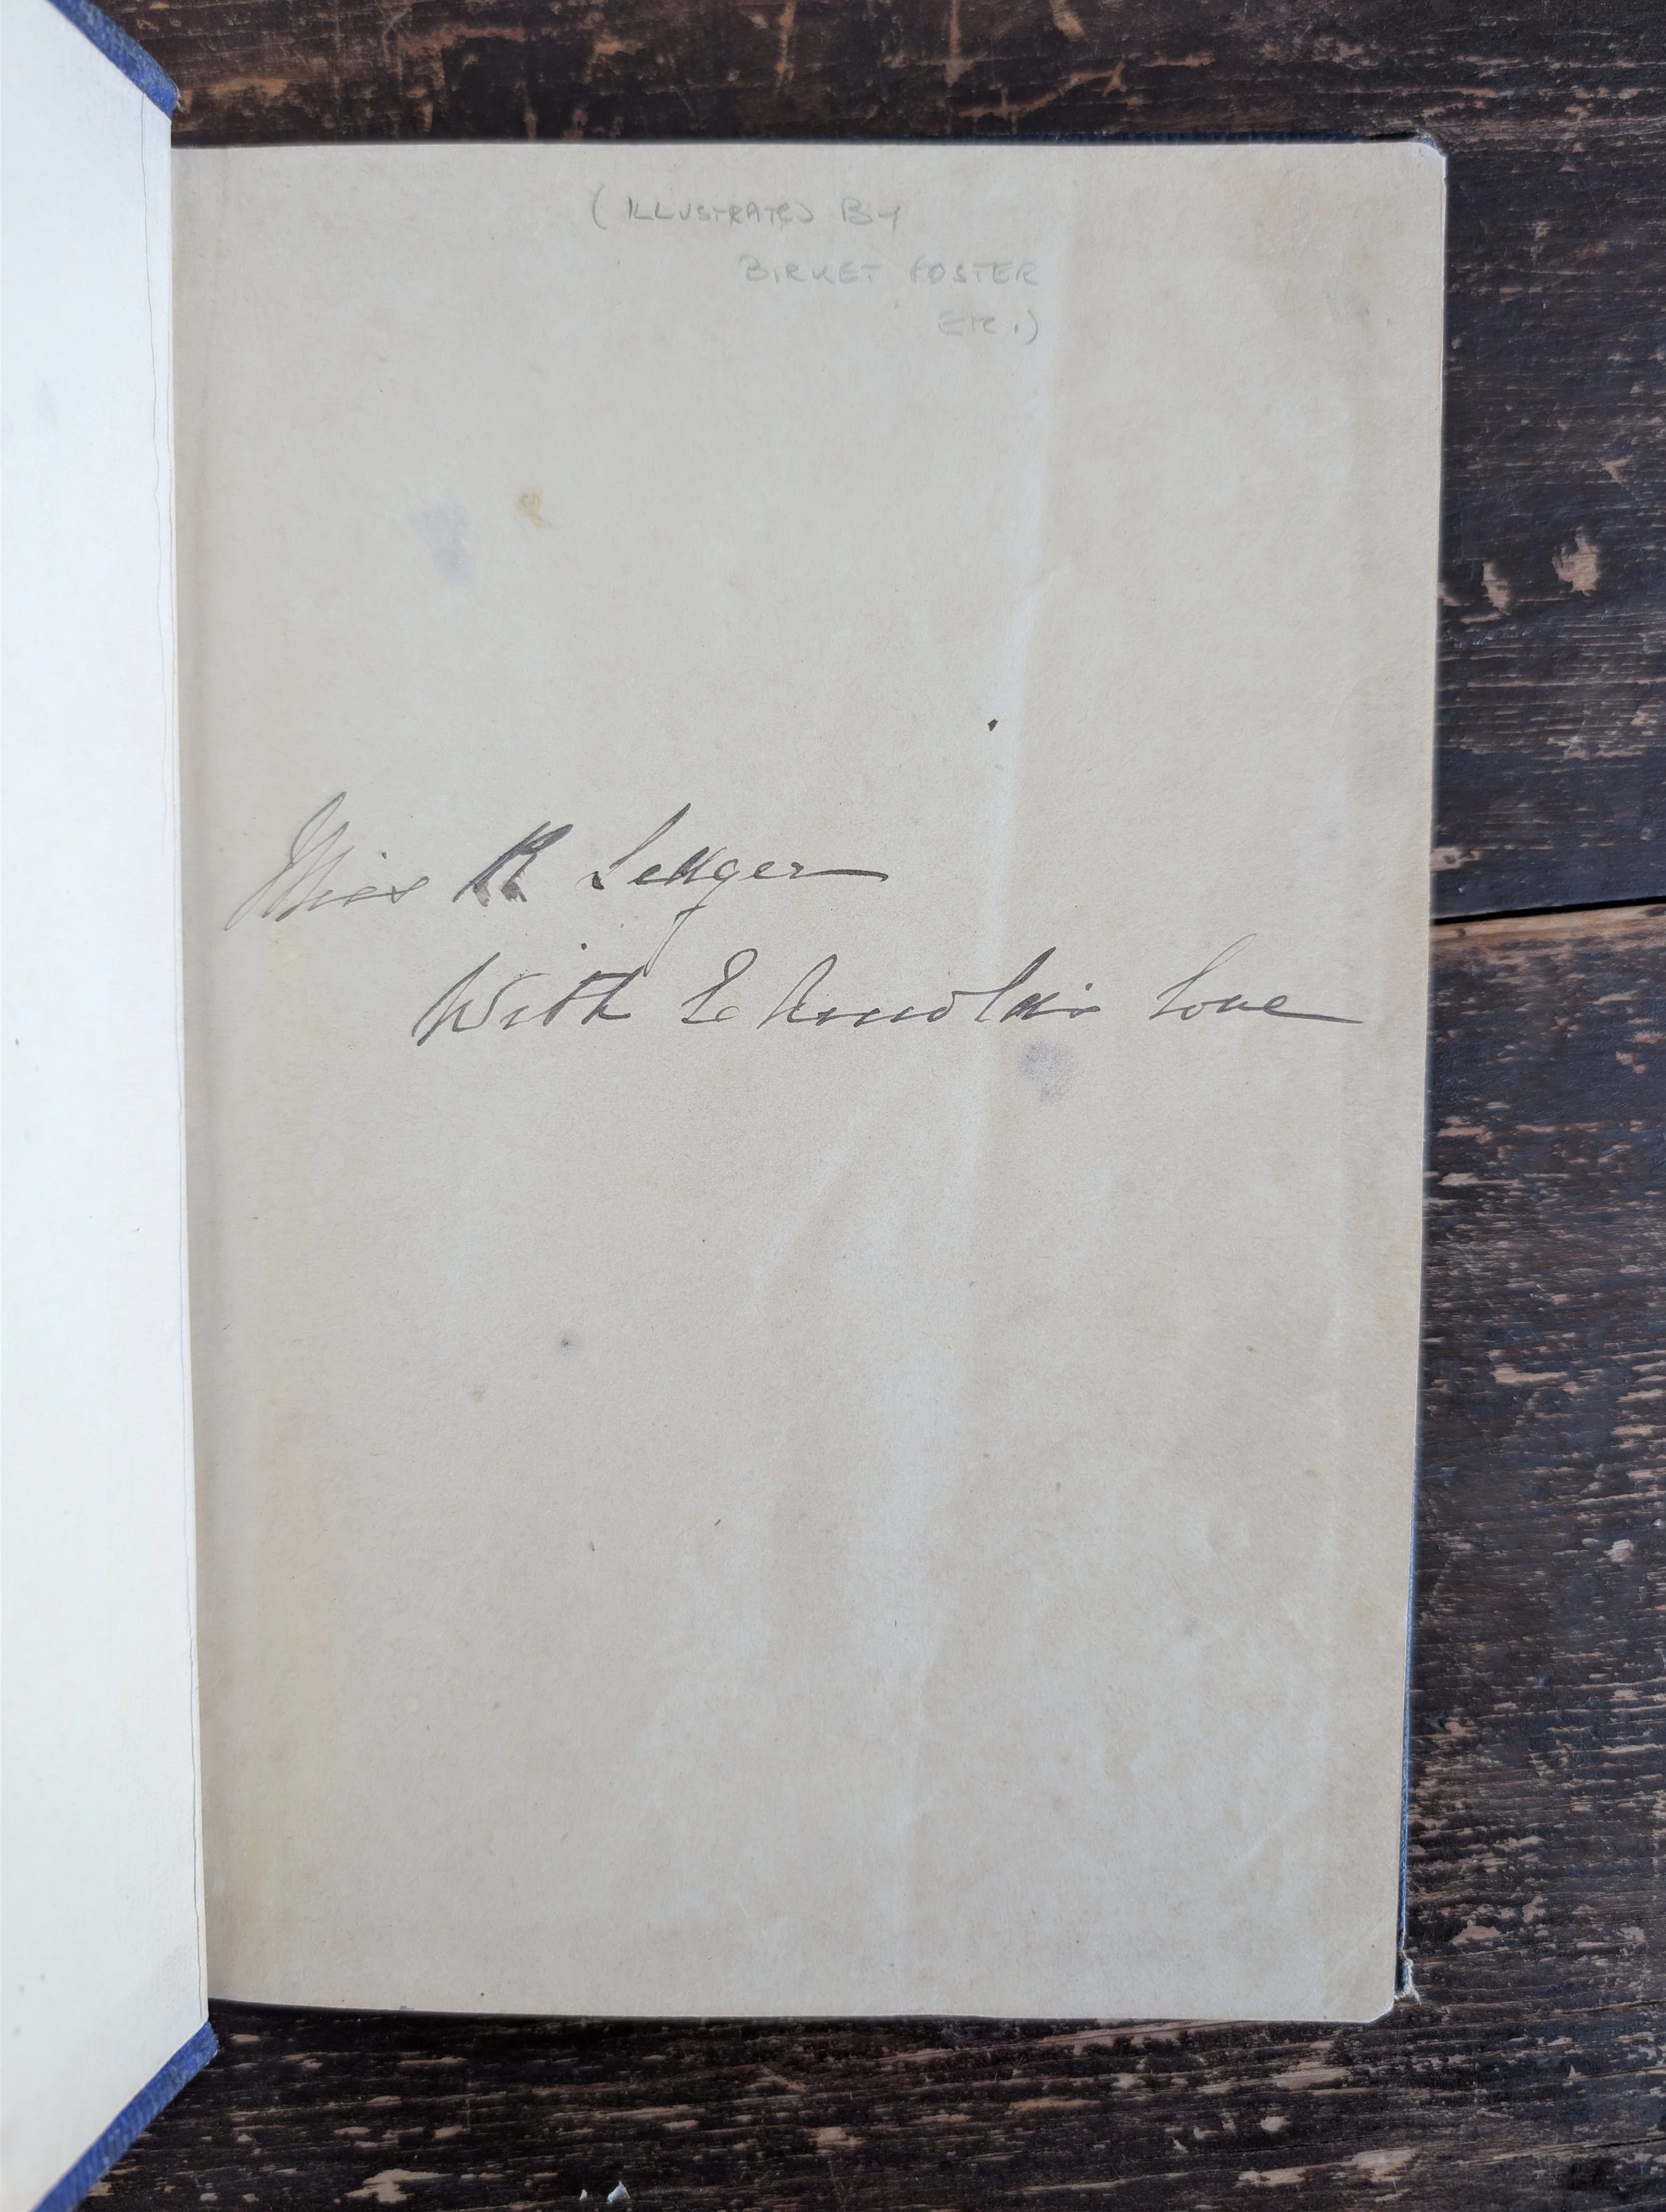 (ILLUSTRATED BY
BIRKET FOSTER
ETC.)
Miss R Ledger
With E Arnold's love